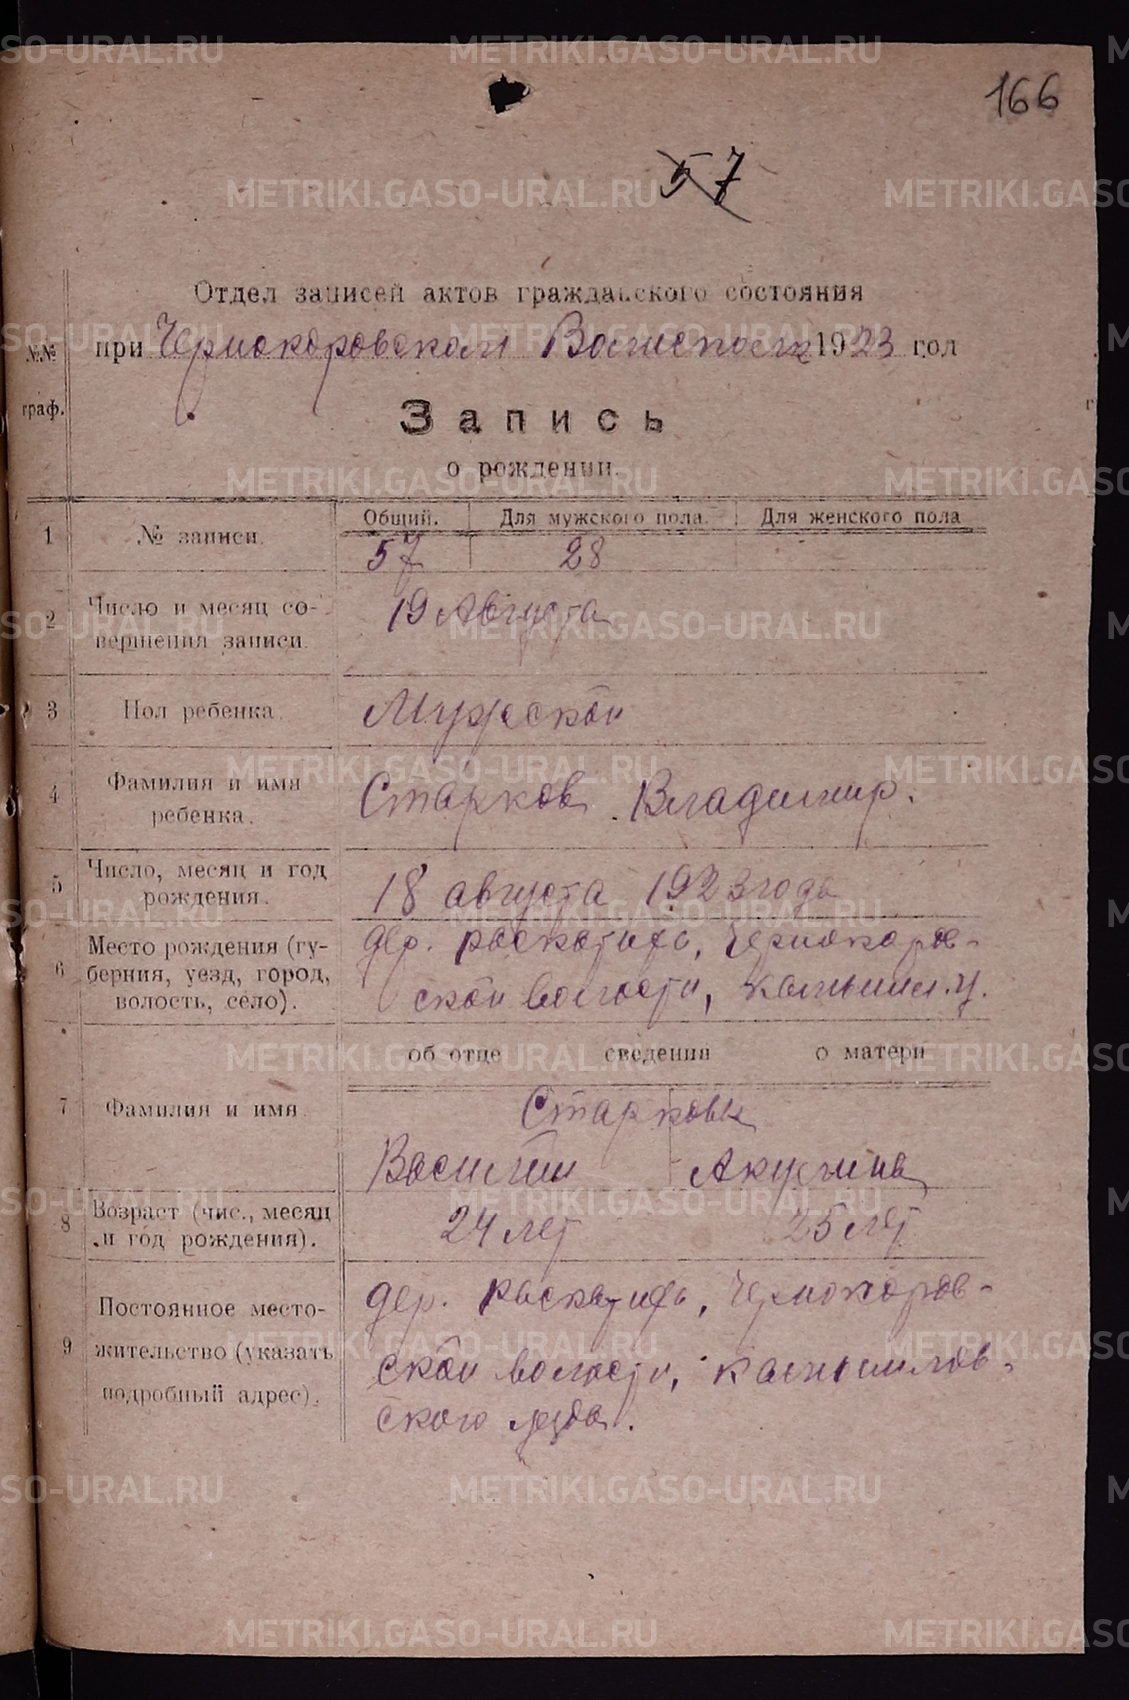 166
57
Отдел записей актов гражданского состояния
№№ при Чернокоровском Волисполк 1923 год
граф.
Запись
о рождении.
Общий. Для мужского пола. Для женского пола
1 № записи. 57 28
2 Число и месяц со-
вершения записи. 19 Августа
3 Пол ребенка. Мужской
4 Фамилия и имя
ребенка. Старков Владимир.
5 Число, месяц и год
рождения. 18 августа 1923 года
6 Место рождения (гу-
берния, уезд, город,
волость, село). дер. Раскатиха, Чернокоров-
ской волости, Камышл. у.
об отце сведения о матери
7 Фамилия и имя. Старковы
Василий Акулина
8 Возраст (чис., месяц
и год рождения). 24 лет 25 лет
9 Постоянное место-
жительство (указать
подробный адрес). дер. Раскатиха, Чернокоров-
ской волости, Камышлов-
ского уезда.
METRIKI.GASO-URAL.RU